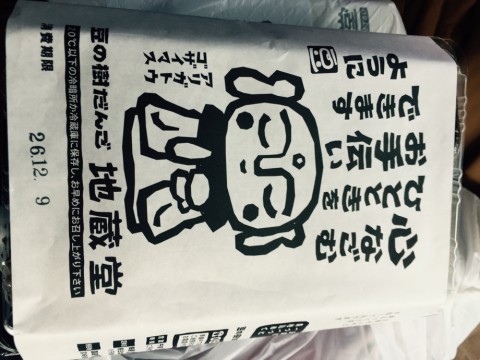 心なごむ
ひとときを
お手伝い
できます
ように
アリガトウ
ゴザイマス
豆の樹だんご 地蔵堂
20℃以下の冷暗所か冷蔵庫に保存し、お早めにお召し上がり下さい
消費期限 26.12. 9